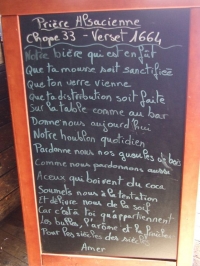 Prière Alsacienne
Chope 33 - Verset 1664
Notre bière qui est en fût
Que ta mousse soit sanctifiée
Que ton verre vienne
Que ta distribution soit faite
Sur la table comme au bar
Donne nous aujourd'hui
Notre houblon quotidien
Pardonne nous nos gueules de bois
Comme nous pardonnons aussi
A ceux qui boivent du coca
Soumets nous à la tentation
Et délivre nous de la soif
Car c'est à toi qu'appartiennent
Les bulles, l'arôme et la fraîcheur
Pour les siècles des siècles
Amer